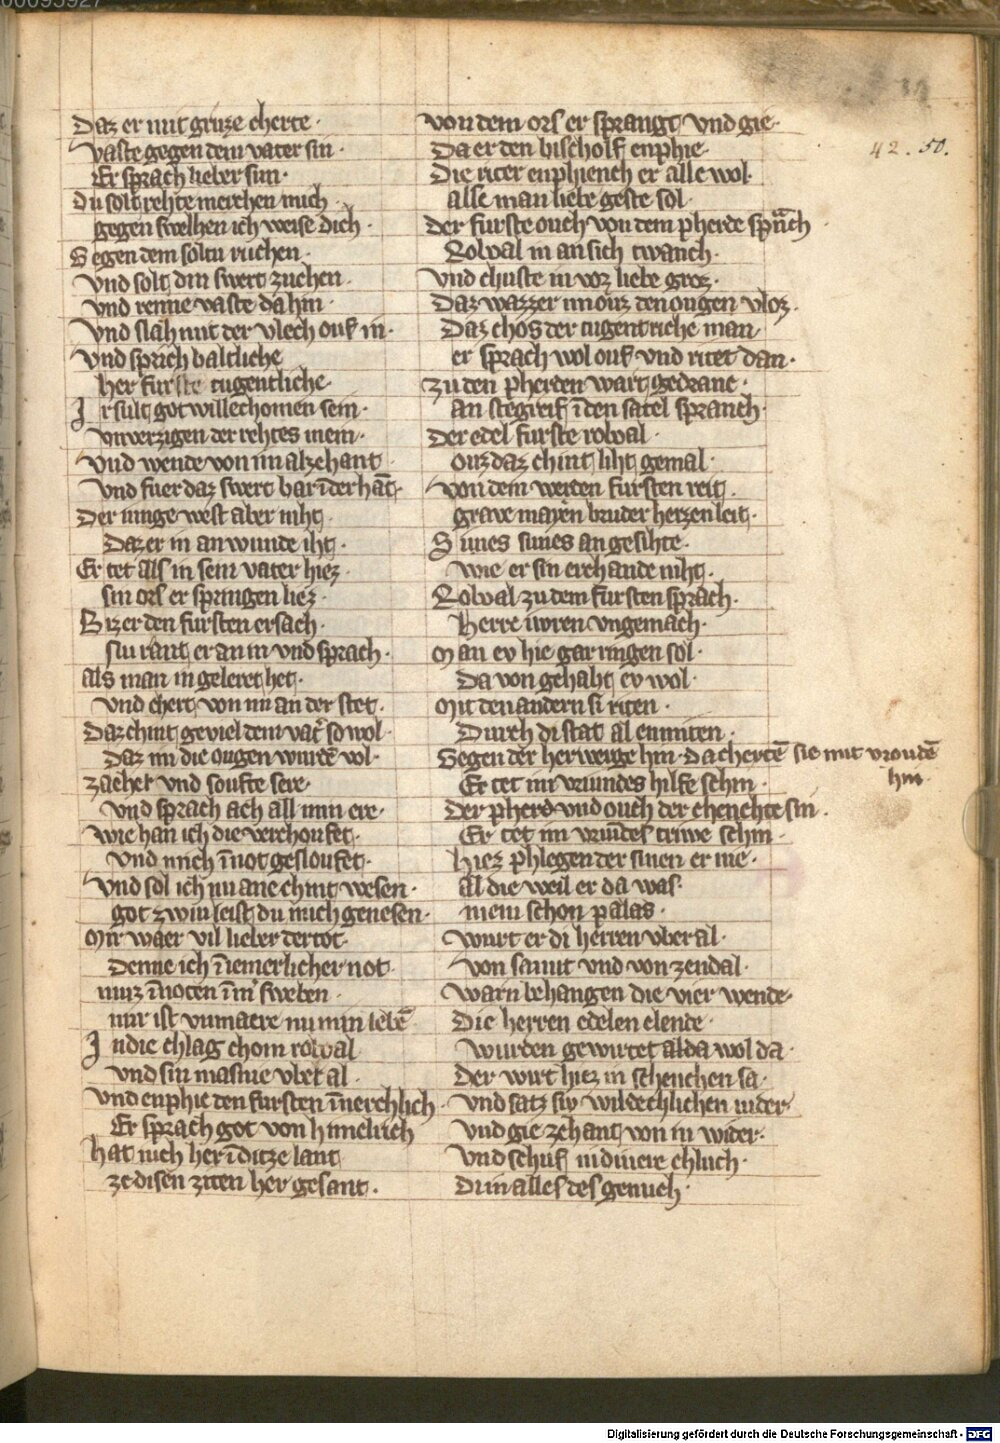 00095927
42. 50.
Daz er mit gruze cherte ·
vaste gegen dem vater sin ·
Er sprach lieber sun ·
du solt rehte merchen mich
gegen swelhen ich weise dich ·
Gegen dem soltu ruchen ·
Vnd solt din swert zuchen ·
vnd renne vaste da hin ·
Vnd slah mit der vlech ouf in ·
Vnd sprich baltliche
her furste tugentliche ·
Ir sult got willechomen sein ·
vnverzigen der rehtes mein ·
Vnd wende von im alzehant
Vnd fuer daz swert bar īder hāt ·
Der iunge west aber niht ·
Daz er in an wunde iht ·
Er tet als in sein vater hiez ·
sin ors er springen liez ·
Biz er den fursten ersach ·
sin rant er an in vnd sprach ·
als man in geleret het ·
vnd chert von im an der stet ·
Daz chint geviel dem vat̄ so wol ·
Daz im die ougen wurdē vol ·
zacher vnd soufte sere ·
Vnd sprach ach all min ere ·
wie han ich die verchoufet ·
Vnd mich ī not gesloufet ·
Vnd sol ich nu ane chint wesen ·
got zwiu leist du mich genesen ·
Mir waer vil lieber der tot ·
Denne ich īiemerlicher not ·
muz ī noten īm̄ sweben ·
mir ist vnmaere nu min lebē
In die chlag chom roval
vnd sin masnie vber al ·
vnd enphie den fursten īnerchlich
Er sprach got von himelrich
hat iuch her ī ditze lant
ze disen ziten her gesant ·
von dem ors er sprangt vnd gie ·
Da er den bischolf enphie ·
Die riter enphiench er alle wol ·
alse man liebe geste sol ·
der furste ouch von dem pherde sprach ·
Rowal in an sich twanch ·
vnd chuste in vor liebe groz ·
Daz wazzer im ouz den ougen vloz ·
Daz chos der tugentriche man ·
er sprach wol ouf vnd ritet dan ·
Zu den pherden wart gedranc ·
an stegreif ī den satel spranch ·
Der edel furste rowal ·
ouz daz chint liht gemal ·
von dem werden fursten reit ·
grave mayen bruder herzen leit ·
Sunes sunes angesihte ·
wie er sin erchande niht ·
Rowal zu dem fursten sprach ·
herre iwren vngemach ·
Man ev hie gar ringen sol ·
Da von gehabt ev wol ·
Mit den andern si riten ·
Durch di stat al enmiten ·
Gegen der herwerge hin · da chertē sie mit vroudē
hin ·
Er tet im vriundes hilfe schin ·
Der pherde vnd ouch der chenchte sin ·
Er tet im vriūdes triwe schin ·
hiez phlegen der sinen er nie ·
al die weil er da was ·
mein schon palas ·
wurt er di herren vberal ·
von samit vnd von zendal ·
Warn behangen die vier wende ·
Die herren edelen elende ·
wurden gewirtet alda wol da ·
Der wirt hiez in schenchen sa ·
Vnd satz siv wildechlichen nider ·
Vnd gie zehant von in wider ·
Vnd schuf
Digitalisierung gefördert durch die Deutsche Forschungsgemeinschaft - DFG